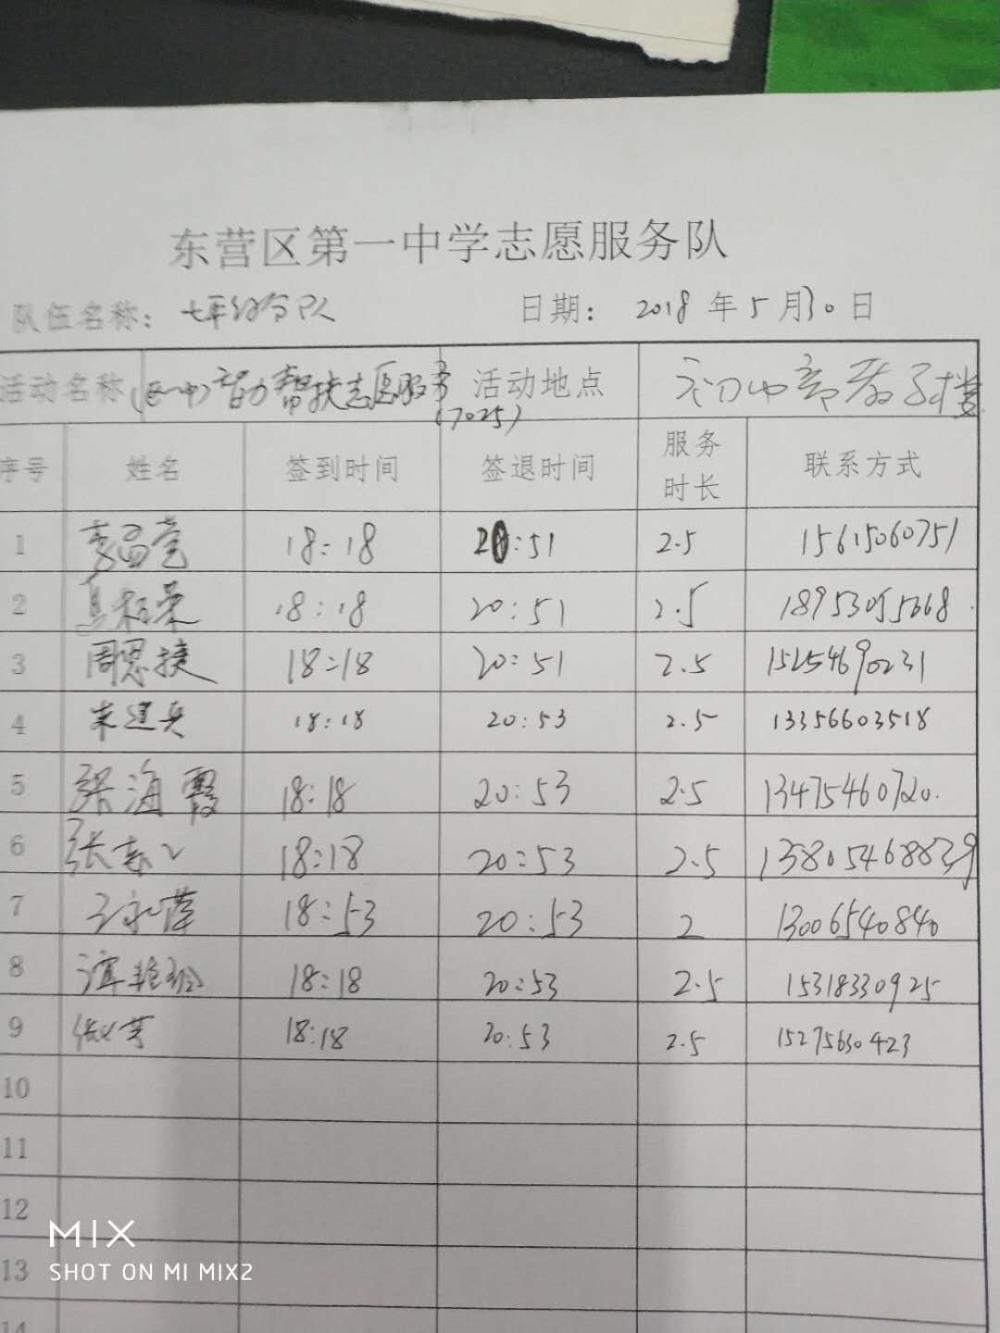 东营区第一中学志愿服务队
队伍名称: 七年级分队 日期: 2018 年 5 月 30 日
活动名称 (区一中)智力帮扶志愿服务(7025) 活动地点 初中部教学楼
序号 姓名 签到时间 签退时间 服务时长 联系方式
1 18:18 20:51 2.5 15615060751
2 18:18 20:51 2.5
3 周思捷 18:18 20:51 2.5 15254690231
4 18:18 20:53 2.5 13356603518
5 张海霞 18:18 20:53 2.5 13475460720.
6 18:18 20:53 2.5 13805468839
7 王永萍 18:53 20:53 2 13006540840
8 18:18 20:53 2.5 15318330925
9 18:18 20:53 2.5 15275630423
10
11
12
13
14
MIX
SHOT ON MI MIX2